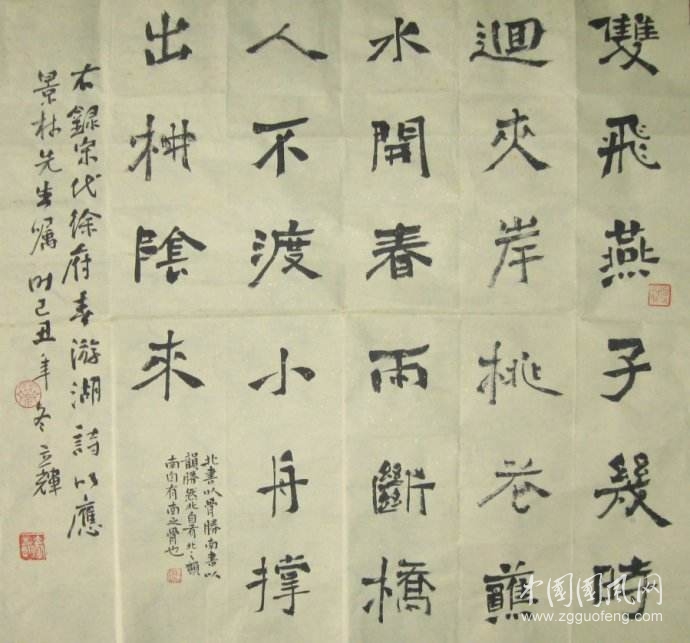 雙飛燕子幾時
迴夾岸桃花蘸
水開春雨斷橋
人不渡小舟撑
出柳陰來
北書以骨勝南書以
韻勝然北自有北之韻
南自有南之骨也
右録宋代徐府春游湖詩以應
景林先生嘱时己丑年冬立輝
中国国风网
www.zgguofeng.com